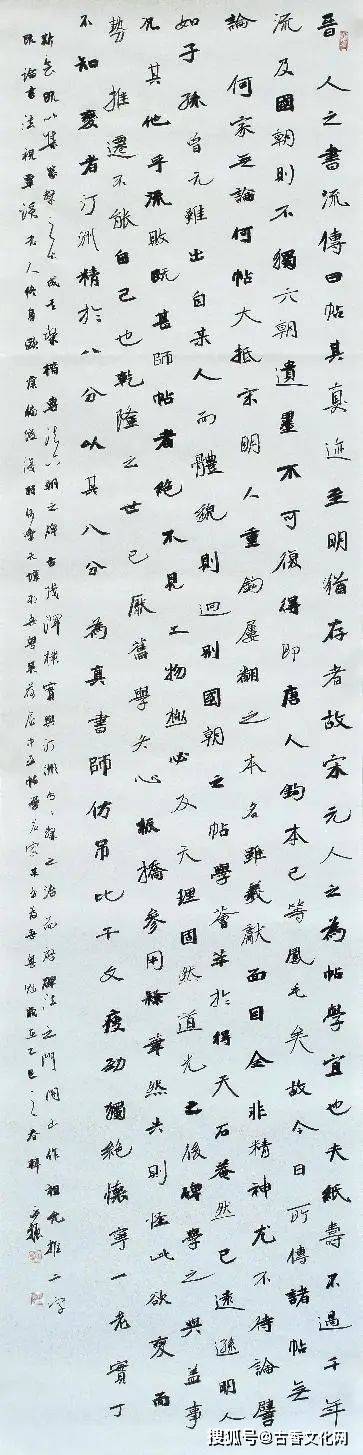 晉人之書流傳曰帖其真迹至明猶存故宋元人之為帖學宜也夫紙壽不過千年
流及國朝則不獨六朝遺墨不可復得即唐人鈎本已等鳳毛矣故今日所傳諸帖无
論何家无論何帖大抵宋明人重鈎屢翻之本名雖羲獻面目全非精神尤不待論譬
如子孫曾元雖出自某人而體貌則迥别國朝之帖學薈萃於得天石菴然已遠遜明人
况其他乎流敗既甚師帖者絶不見工物極必反天理固然道光之後碑學之興蓋事
勢推遷不能自已也乾隆之世已厭舊學冬心板橋參用隸筆然失則怪此欲變而
不知變者汀洲精於八分以其八分為真書師仿吊比干文瘦勁獨絶懷寧一老實丁
斯會既以集篆隸之大成其楷書法六朝之碑古茂渾樸實與汀洲分隸之治而啟碑法之門開山作祖允推二字
乙巳之春
搜狐号@古香文化网